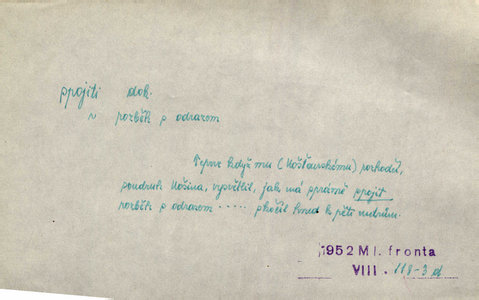 spojiti dok.
v rozběh s odrazem
Teprve když mu (Košťavskému) rozhodčí,
soudruh Kosina, vysvětlil, jak má správně spojit
rozběh s odrazem ..... skočil hned k pěti metrům.
1952 Ml. fronta
VIII. 118-3 d